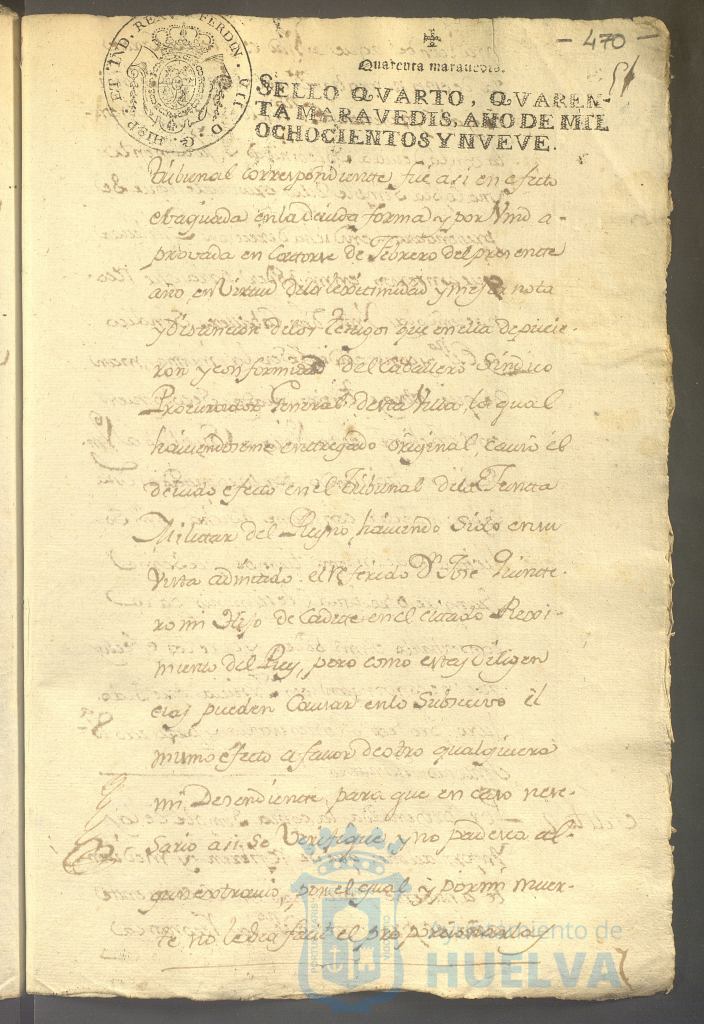 HISP. ET IND. REX FERDIN. VII. D. G.
- 470 -
51
Quarenta maravedis.
SELLO QVARTO, QVAREN-
TA MARAVEDIS, AÑO DE MIL
OCHOCIENTOS Y NVEVE.
tribunal correspondiente, fue asi en efecto
ebaquada en la devida forma y por Vmd a-
provada en Catorse de Febrero del presente
año, en virtud de la lexitimidad y mejor nota
y distincion de los testigos que en ella depucie-
ron y conformidad del Caballero Sindico
Procurador General de esta Villa, la qual
haviendoseme entregado original causó el
devido efecto en el Tribunal de la Juncta
Militar del Reyno, haviendo sido en su
vista admitido el referido Dn Jose Quinte-
ro mi Hijo de Cadete en el citado Rexi-
miento del Rey, pero como estas Diligen
cias pueden causar en lo subcesivo el
mismo efecto a favor de otro qualquiera
mi Desendiente, para que en caso nese-
sario asi se verifique y no padesca al-
gun extravio, por el qual y por mi muer-
te, no le sea facil el proporsionarlas
Ayuntamiento de
HUELVA